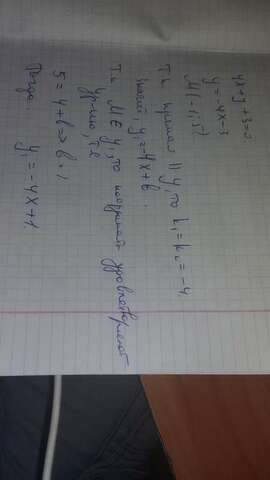 4x+y+3=0
y=-4x-3
M(-1;5)
Т.к прямая || y, то k₁=k₂=-4.
значит, y₁=-4x+b.
Т.к M∈y, то координаты удовлетворяют
ур-нию, т.е
5=4+b=>b=1
Тогда: y₁=-4x+1